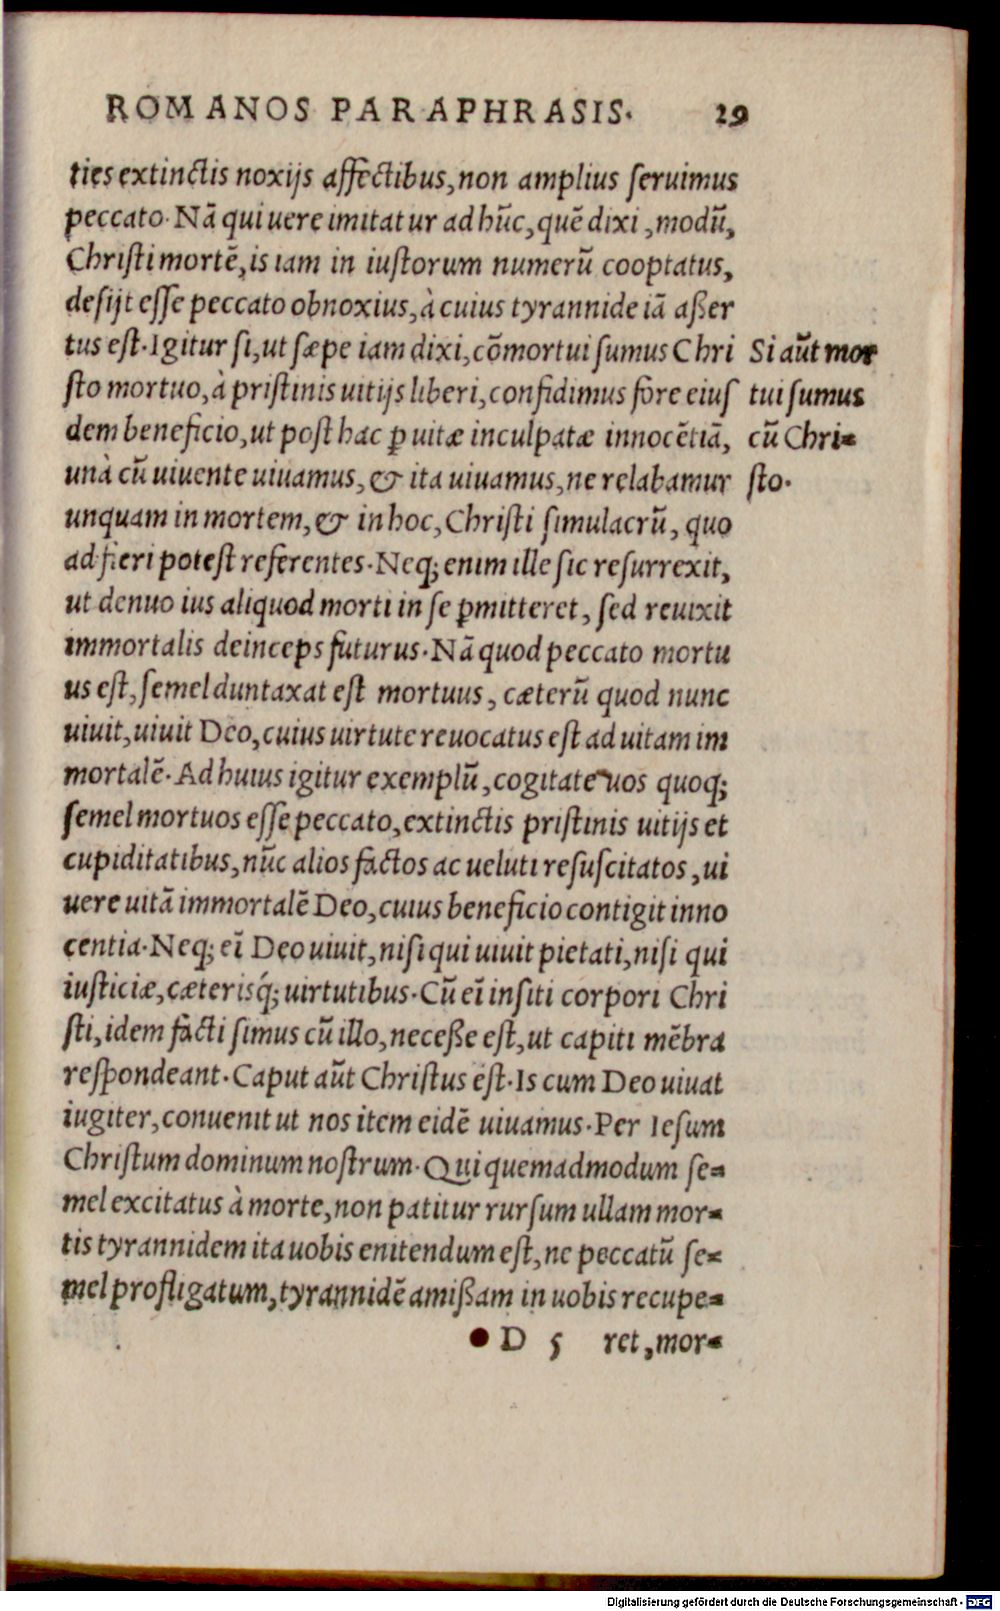 ROMANOS PARAPHRASIS. 29
ties extinctis noxijs affectibus, non amplius seruimus
peccato. Nã qui uere imitatur ad hũc, quẽ dixi, modũ,
Christi mortẽ, is iam in iustorum numerũ cooptatus,
desijt esse peccato obnoxius, à cuius tyrannide iã aßer
tus est. Igitur si, ut sæpe iam dixi, cõmortui sumus Chri
sto mortuo, à pristinis uitijs liberi, confidimus fore eius
dem beneficio, ut post hac ꝑ uitæ inculpatæ innocẽtiã,
unà cũ uiuente uiuamus, & ita uiuamus, ne relabamur
unquam in mortem, & in hoc, Christi simulacrũ, quo
ad fieri potest referentes. Neq; enim ille sic resurrexit,
ut denuo ius aliquod morti in se ꝑmitteret, sed reuixit
immortalis deinceps futurus. Nã quod peccato mortu
us est, semel duntaxat est mortuus, cæterũ quod nunc
uiuit, uiuit Deo, cuius uirtute reuocatus est ad uitam im
mortalẽ. Ad huius igitur exemplũ, cogitate uos quoq;
semel mortuos esse peccato, extinctis pristinis uitijs et
cupiditatibus, nũc alios factos ac ueluti resuscitatos, ui
uere uitã immortalẽ Deo, cuius beneficio contigit inno
centia. Neq; eĩ Deo uiuit, nisi qui uiuit pietati, nisi qui
iusticiæ, cæterisq́; uirtutibus. Cũ eĩ insiti corpori Chri
sti, idem facti simus cũ illo, neceße est, ut capiti mẽbra
respondeant. Caput aũt Christus est. Is cum Deo uiuat
iugiter, conuenit ut nos item eidẽ uiuamus. Per Iesum
Christum dominum nostrum. Qui quemadmodum se-
mel excitatus à morte, non patitur rursum ullam mor-
tis tyrannidem ita uobis enitendum est, ne peccatũ se-
mel profligatum, tyrannidẽ amißam in uobis recupe-
D 5 ret, mor-
Si aũt mor
tui sumus
cũ Chri-
sto.
Digitalisierung gefördert durch die Deutsche Forschungsgemeinschaft - DFG